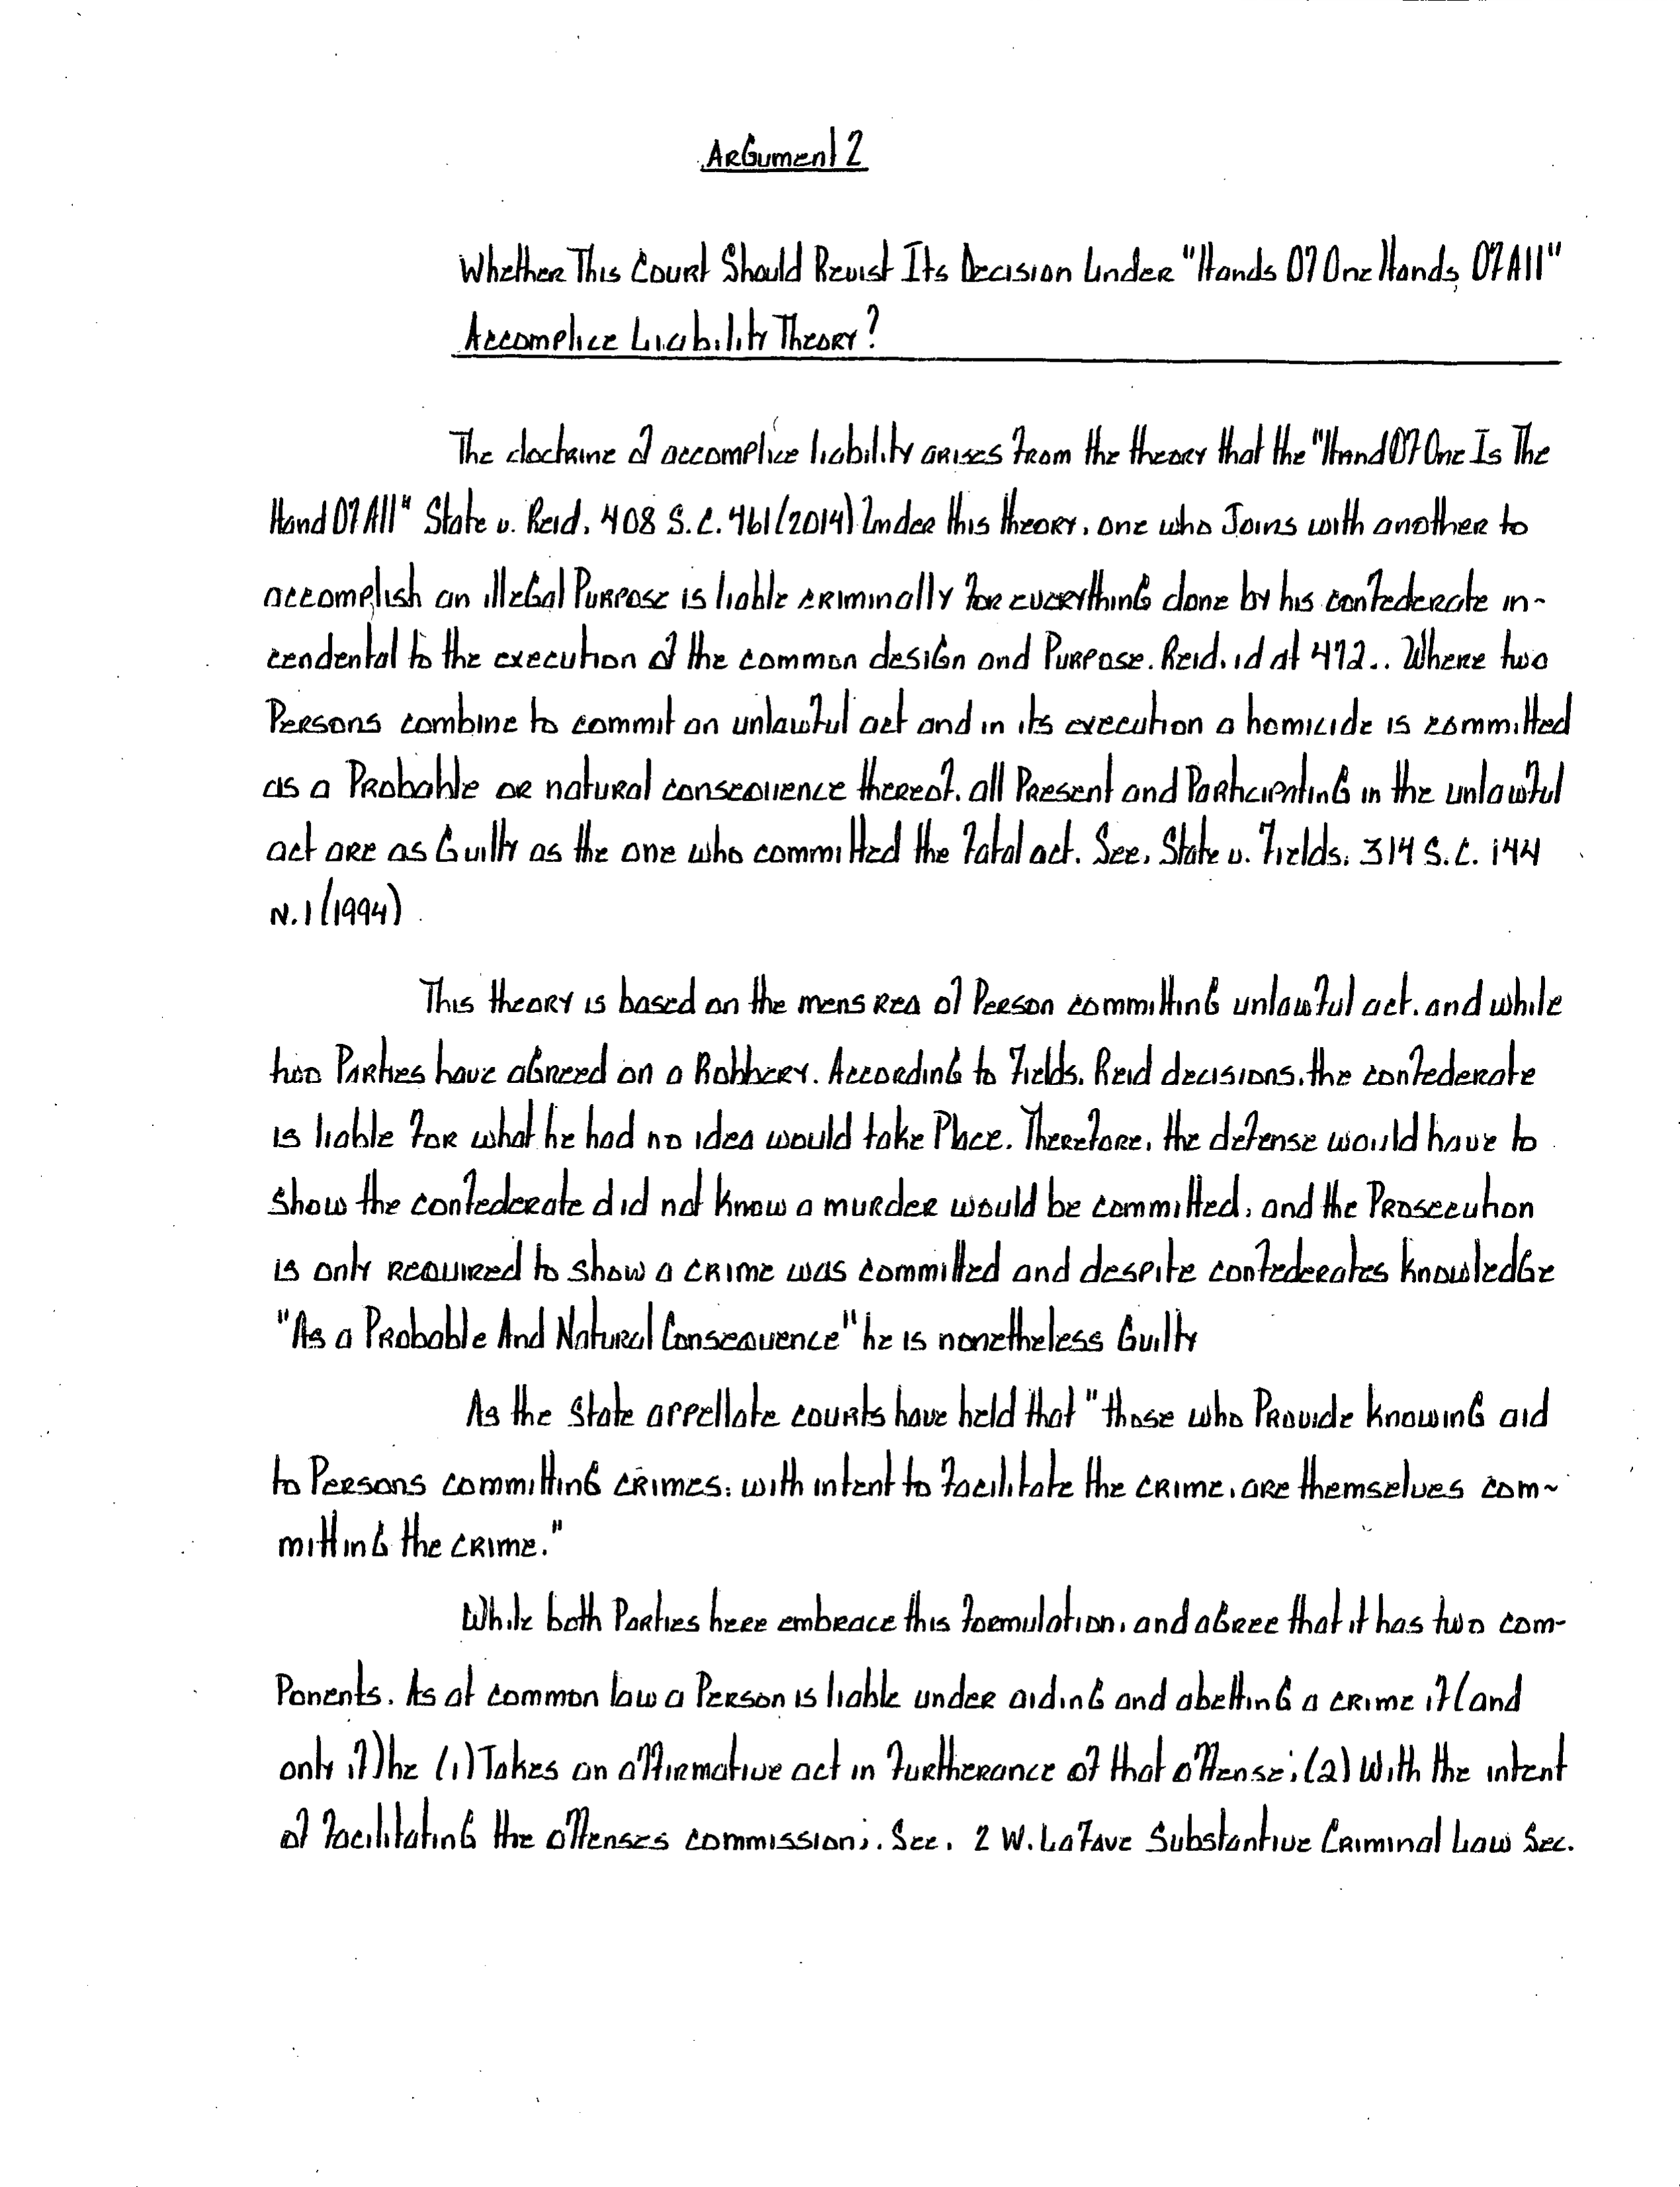 Argument 2
Whether This Court Should Revist Its Decision Under "Hands Of One Hands Of All"
Accomplice Liability Theory?
The doctrine of accomplice liability arises from the theory that the "Hand Of One Is The
Hand Of All" State v. Reid, 408 S.C. 461 (2014) Under this theory, one who Joins with another to
accomplish an illegal Purpose is liable criminally for everything done by his confederate in-
cendental to the execution of the common design and Purpose. Reid, id at 472.. Where two
Persons combine to commit an unlawful act and in its execution a homicide is committed
as a Probable or natural consequence thereof, all Present and Participating in the unlawful
act are as Guilty as the one who committed the fatal act. See, State v. Fields, 314 S.C. 144
N.1 (1994)
This theory is based on the mens rea of Person committing unlawful act, and while
two Parties have agreed on a Robbery. According to Fields, Reid decisions, the confederate
is liable for what he had no idea would take Place. Therefore, the defense would have to
show the confederate did not know a murder would be committed, and the Prosecution
is only required to show a crime was committed and despite confederates knowledge
"As a Probable And Natural Consequence" he is nonetheless Guilty
As the State appellate courts have held that "those who Provide knowing aid
to Persons committing crimes, with intent to facilitate the crime, are themselves com-
mitting the crime."
While both Parties here embrace this formulation, and agree that it has two com-
Ponents. As at common law a Person is liable under aiding and abetting a crime if (and
only if) he (1) Takes an affirmative act in furtherance of that offense; (2) With the intent
of facilitating the offenses commission;. See, 2 W. LaFave Substantive Criminal Law Sec.